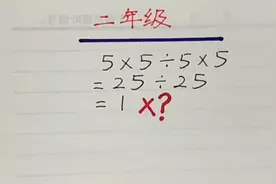 二年级
5×5÷5×5
=25÷25
=1 ×?